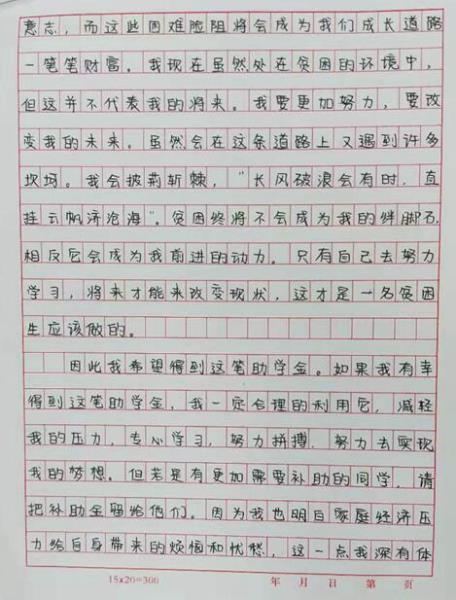 意志，而这些困难险阻将会成为我们成长道路
一笔笔财富。我现在虽然处在贫困的环境中，
但这并不代表我的将来。我要更加努力，要改
变我的未来。虽然会在这条道路上又遇到许多
坎坷。我会披荆斩棘，“长风破浪会有时，直
挂云帆济沧海”。贫困终将不会成为我的绊脚石，
相反它会成为我前进的动力。只有自己去努力
学习，将来才能来改变现状，这才是一名贫困
生应该做的。
因此我希望得到这笔助学金。如果我有幸
得到这笔助学金，我一定合理的利用它，减轻
我的压力，专心学习，努力拼搏，努力去实现
我的梦想。但若是有更加需要补助的同学，请
把补助金留给他们。因为我也明白家庭经济压
力给自身带来的烦恼和忧愁，这一点我深有体
15×20=300 年 月 日 第 页